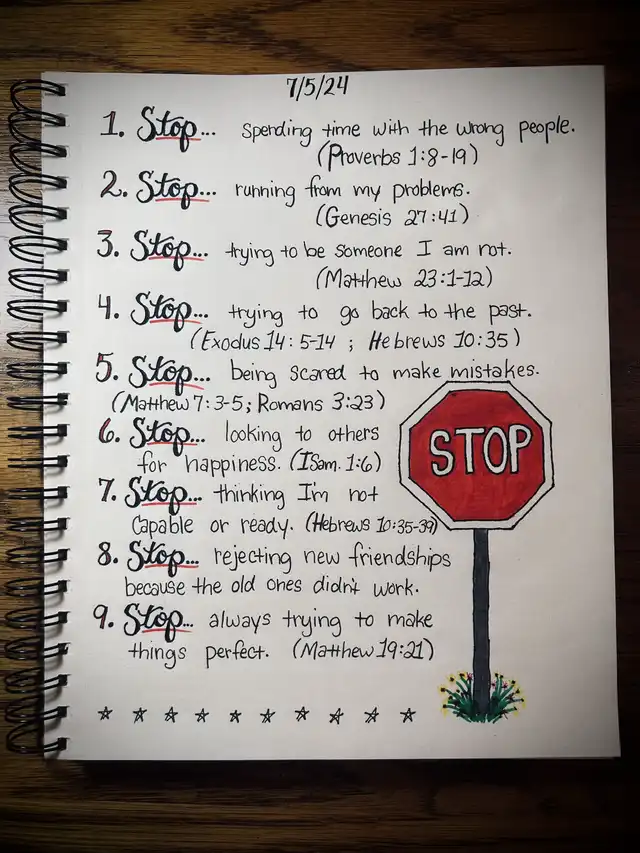 7/5/24
1. Stop... spending time with the wrong people.
(Proverbs 1:8-19)
2. Stop... running from my problems.
(Genesis 27:41)
3. Stop... trying to be someone I am not.
(Matthew 23:1-12)
4. Stop... trying to go back to the past.
(Exodus 14:5-14 ; Hebrews 10:35)
5. Stop... being scared to make mistakes.
(Matthew 7:3-5; Romans 3:23)
6. Stop... looking to others
for happiness. (I Sam. 1:6)
7. Stop... thinking I'm not
capable or ready. (Hebrews 10:35-39)
8. Stop... rejecting new friendships
because the old ones didn't work.
9. Stop... always trying to make
things perfect. (Matthew 19:21)
STOP